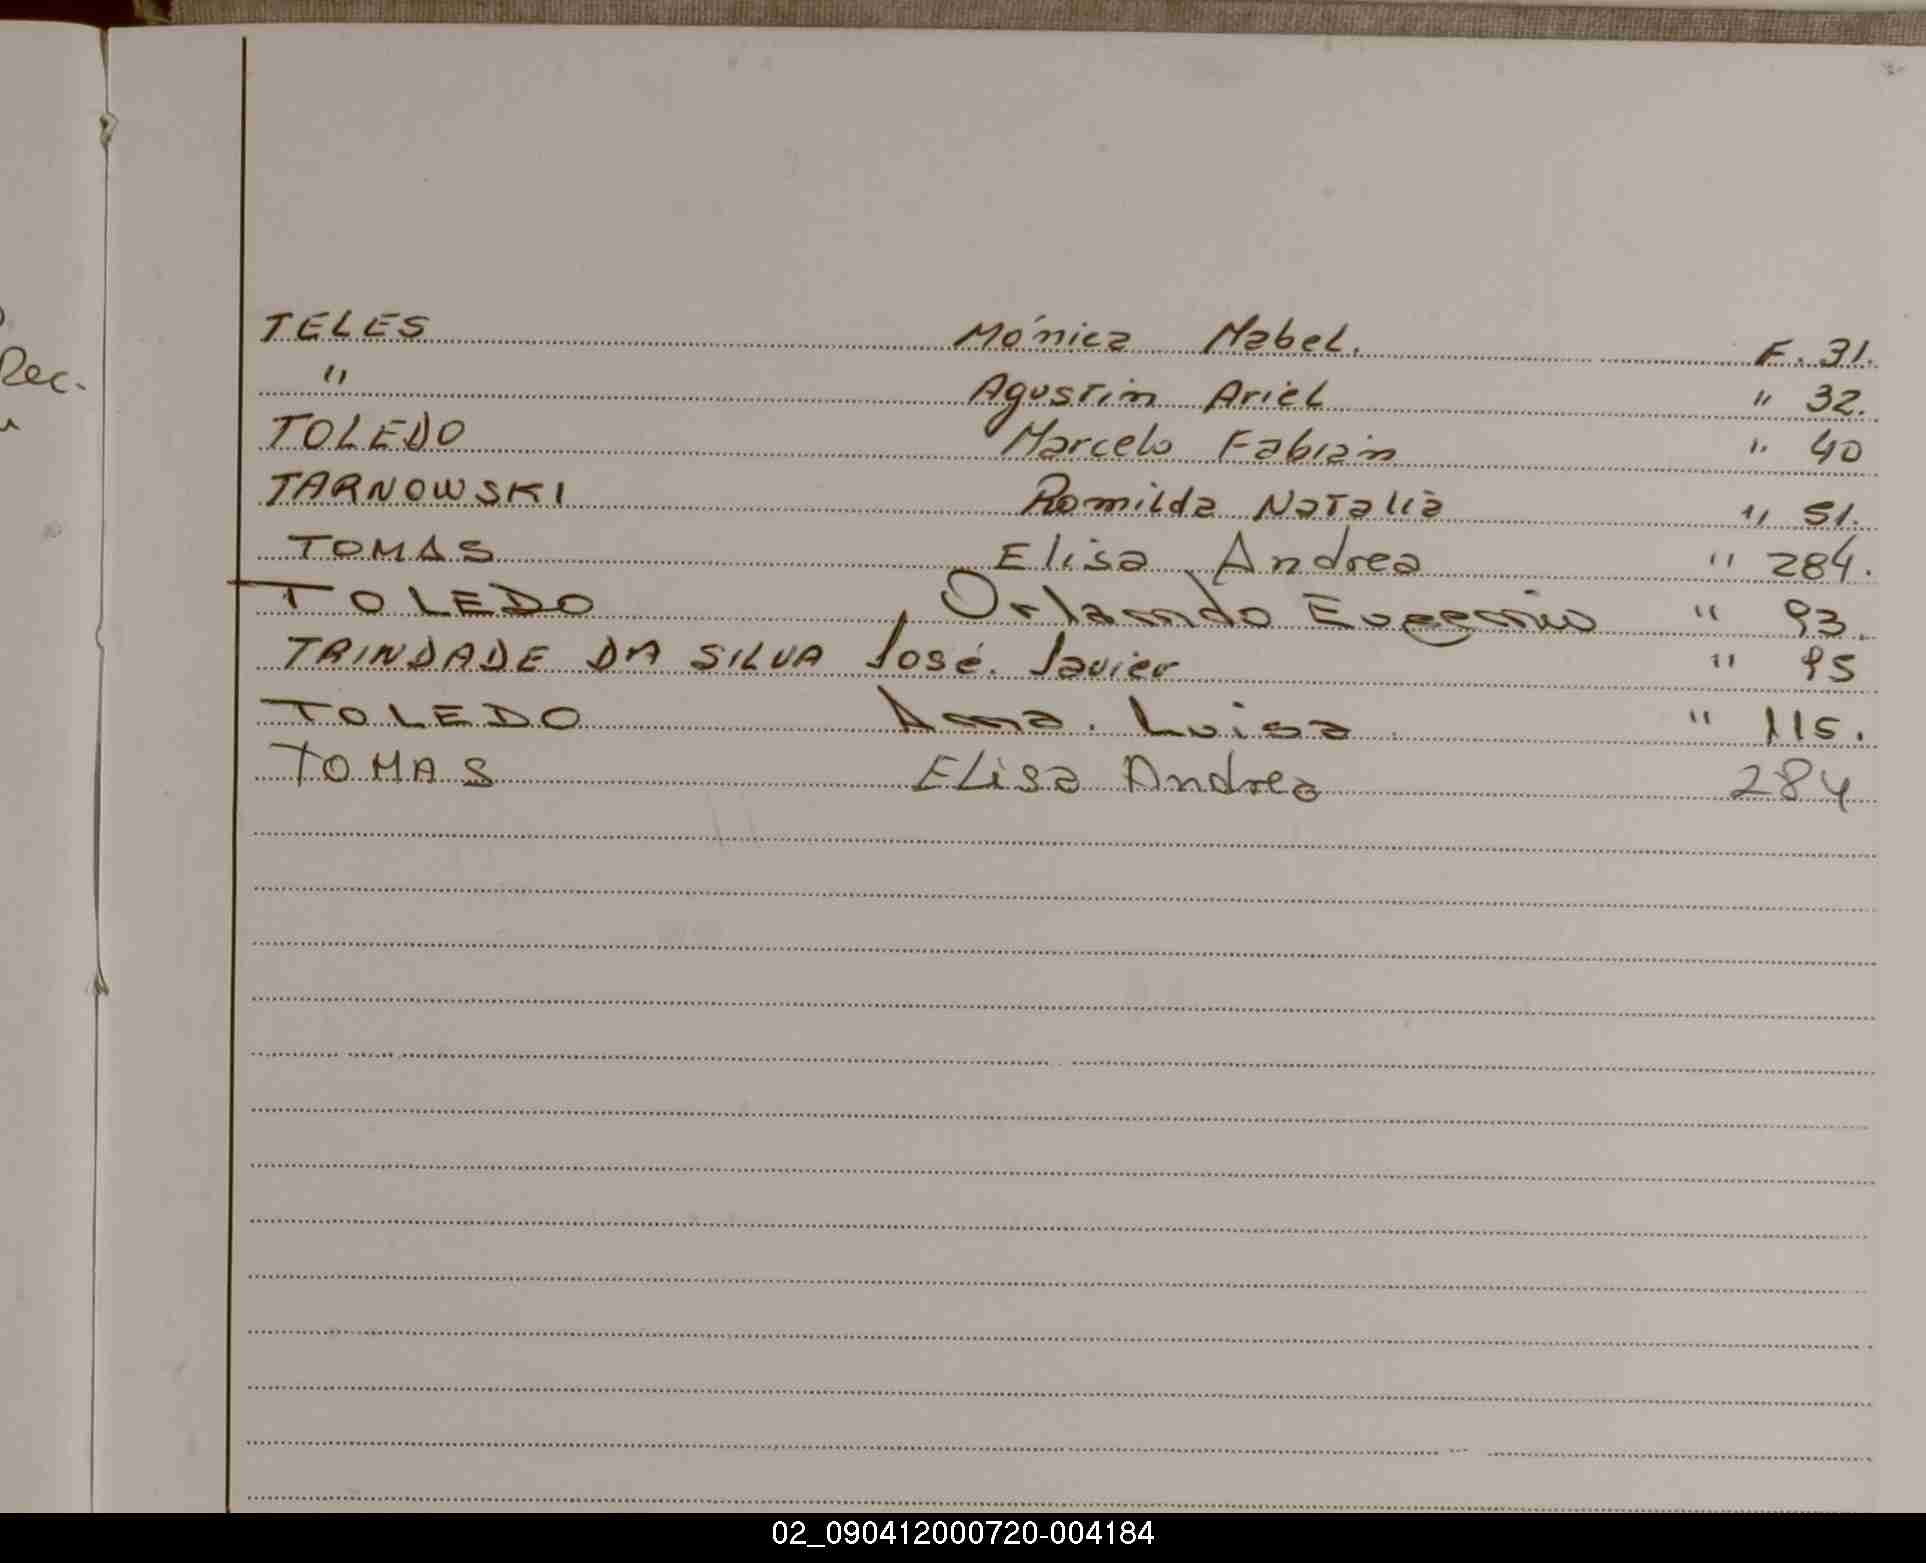 Rec.
TELES Mónica Mabel. F. 31.
" Agustin Ariel " 32.
TOLEDO Marcelo Fabian " 40
TARNOWSKI Romilda Natalia " 51.
TOMAS Elisa Andrea " 284.
TOLEDO Orlando Eugenio " 93.
TRINDADE DA SILVA José. Javier " 95
TOLEDO Ana. Luisa " 115.
TOMAS Elisa Andrea 284
02_090412000720-004184